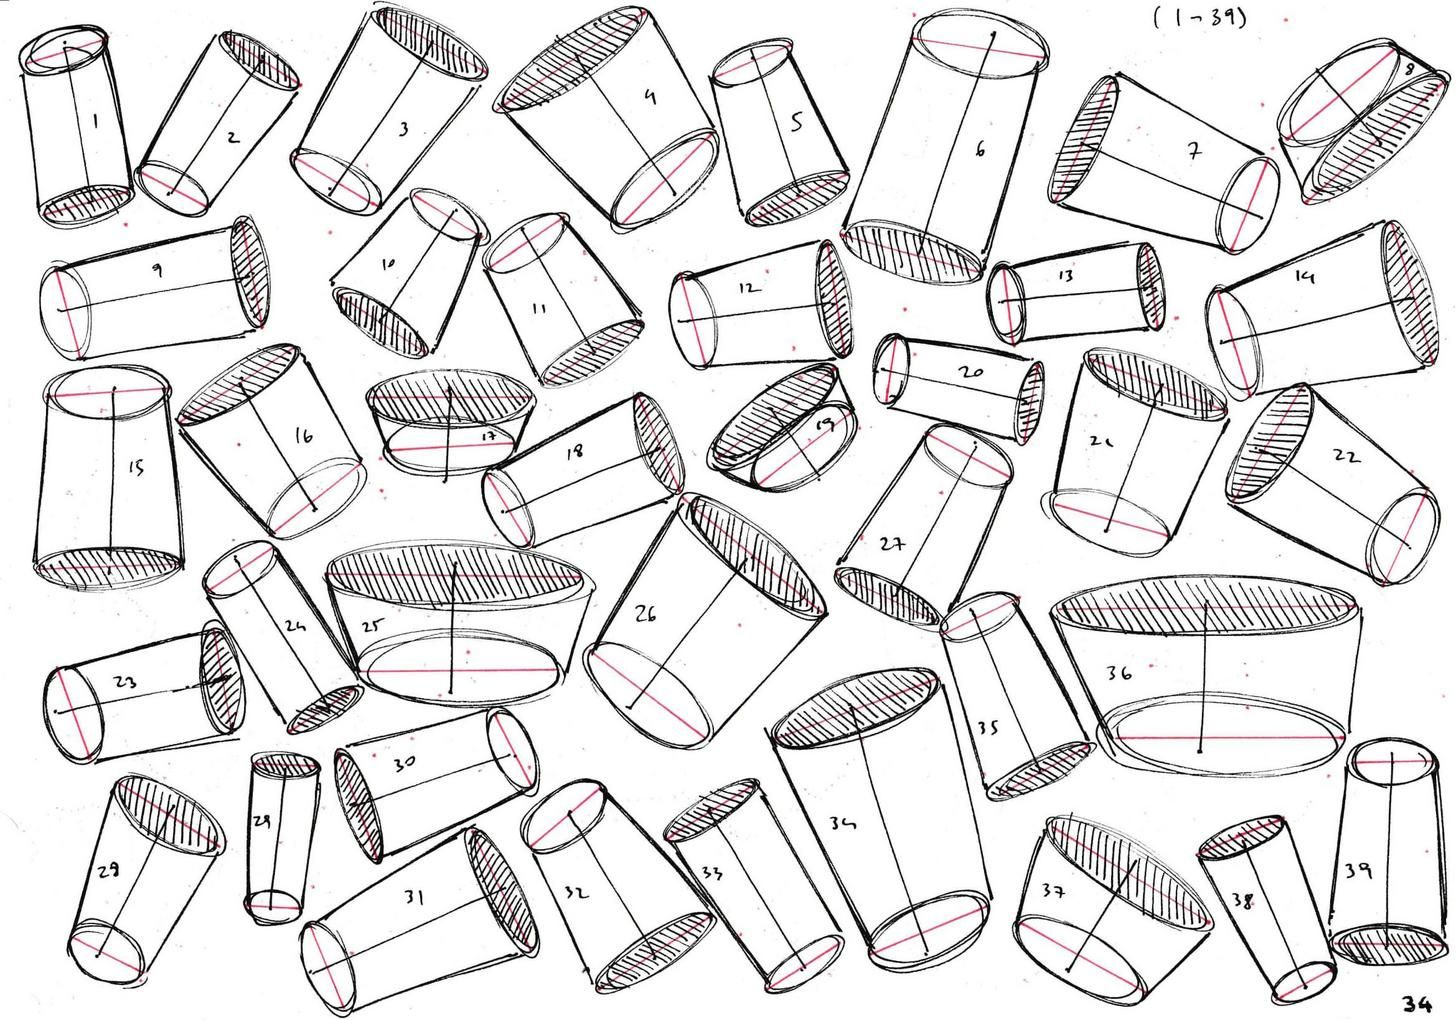 ( 1 - 39)
1
2
3
4
5
6
7
8
9
10
11
12
13
14
15
16
17
18
19
20
21
22
23
24
25
26
27
29
29
30
31
32
33
34
35
36
37
38
39
34